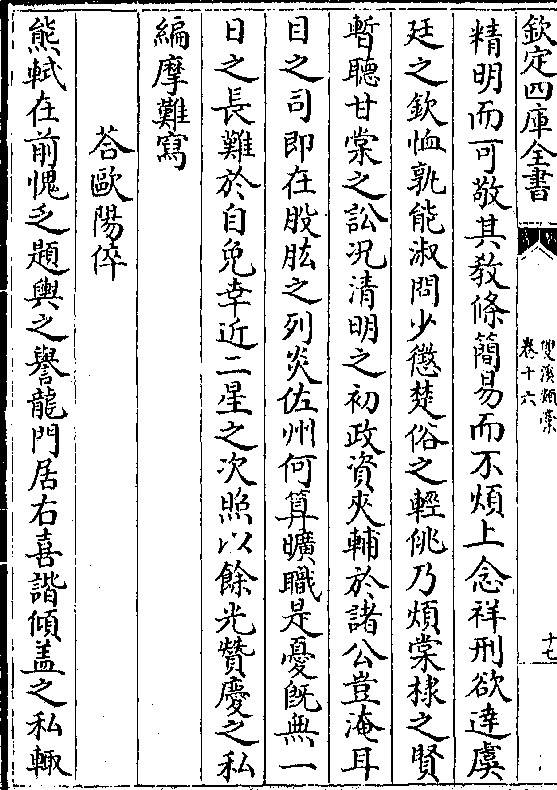 欽定四庫全書
雙溪類稾
卷十六
十七
精明而可敬其教條簡易而不煩上念祥刑欲達虞
廷之欽恤孰能淑問少懲楚俗之輕佻乃煩棠棣之賢
暫聽甘棠之訟况清明之初政資夾輔於諸公豈淹耳
目之司即在股肱之列炎佐州何算曠職是憂旣無一
日之長難於自免幸近二星之次照以餘光贊慶之私
編摩難寫
荅歐陽倅
熊軾在前愧乏題輿之譽龍門居右喜諧傾盖之私輙